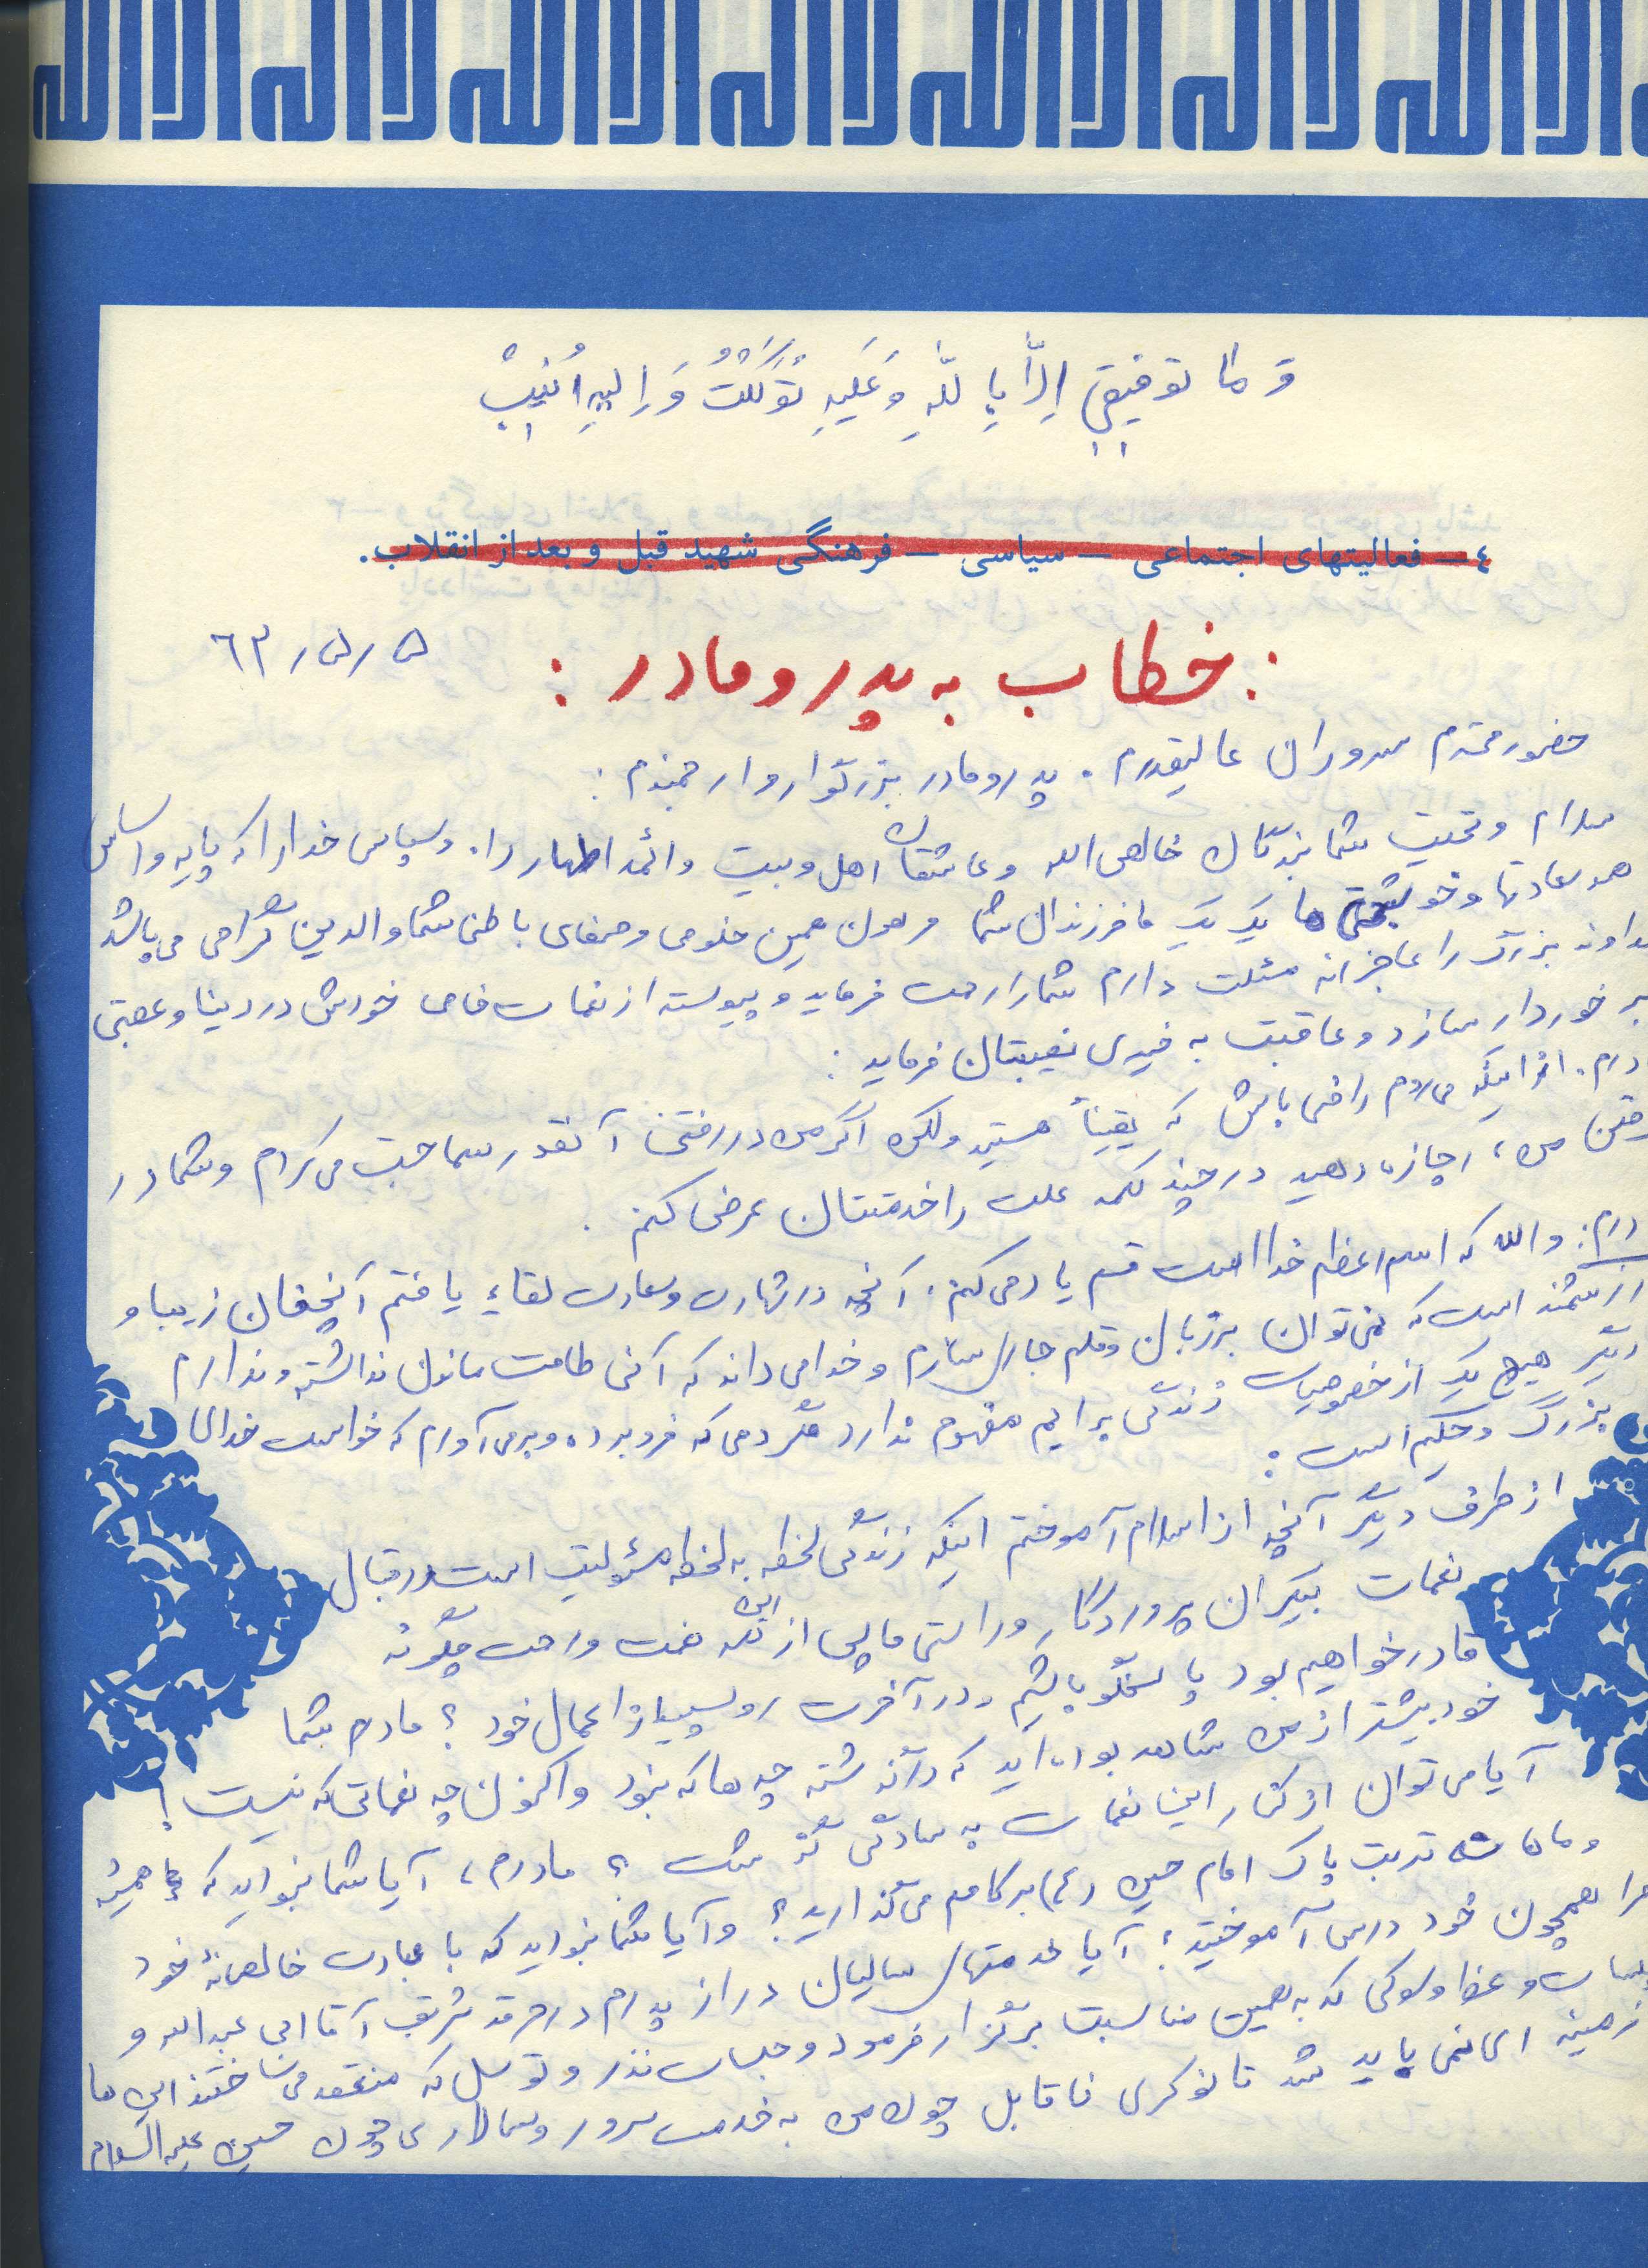 لااله الاالله لااله الاالله لااله الاالله لااله الاالله
وَ ما توفیقی اِلاّ بِا للهِ وَ عَلَیهِ تَوَکَّلتُ وَ اِلیهِ اُنیبْ
٤ – فعالیتهای اجتماعی – سیاسی – فرهنگی شهید قبل و بعد از انقلاب.
: خطاب به پدر و مادر :
۶۳/۵/۵
حضور محترم سروران عالیقدرم . پدر و مادر بزرگوار و ارجمندم :
سلام و تحیت شما بندگان خالص الله و عاشقان اهل و بیت و ائمه اطهار را. و سپاس خدا را که پایه و اساس
همه سعادتها و خوشبختی ها یک یک ما فرزندان شما مرهون همین خلوص و صفای باطن شما والدین گرامی می باشد
خداوند بزرگ را عاجزانه مسئلت دارم شما را رحمت فرماید و پیوسته از نعمات خاص خودش در دنیا و عقبی
بر خوردار سازد و عاقبت به خیری نصیبتان فرماید :
مادرم. از اینکه می روم راضی باش که یقیناً هستید ولکن اگر من در رفتن آنقدر سماجت می کردم و شما در
رفتن من، اجازه دهید در چند کلمه علت را خدمتتان عرض کنم .
مادرم: والله که اسم اعظم خدا است قسم یاد می کنم. آنچه در شهادت و سعادت لقاء یافتم آنچنان زیبا و
ارزشمند است که نمی توان بر زبان و قلم جاری سازم و خدا می داند که آنی طاقت ماندن نداشته و ندارم
دیگر هیچ یک از خصوصیات زندگی برایم مفهوم ندارد مگر دمی که فرو برده و برمی آورم که خواست خدای
بزرگ و حکیم است :
از طرف دیگر آنچه از اسلام آموختم اینکه زندگی لحظه به لحظه مسئولیت است در قبال
نعمات بیکران پروردگار و راستی ما پس از این همه نعمت و رحمت چگونه
قادر خواهیم بود پاسخگو باشیم و در آخرت رو سپید از اعمال خود ؟ مادرم شما
خود بیشتر از من شاهد بوده اید که در گذشته چه ها که نبود و اکنون چه نعماتی که نیست !
آیا می توان از کنار این نعمات به سادگی گذشت ؟ مادرم، آیا شما نبودید که همیشه
و مادام تربت پاک امام حسین (ع) بر کامم می گذارید ؟ و آیا شما نبودید که با عبادت خالصانهٔ خود
مرا همچون خود درس آموختید ؛ آیا خدمتهای سالیان دراز پدرم در مرقد شریف آقا ابی عبدالله و
جلسات وعظ و سوگی که به همین مناسبت برگزار فرمود و جلسات نذر و توسل که منعقد می ساختند این ها
زمینه ای نمی باید شد تا نوکری ناقابل چون من به خدمت سرور و سالاری چون حسین علیه السلام